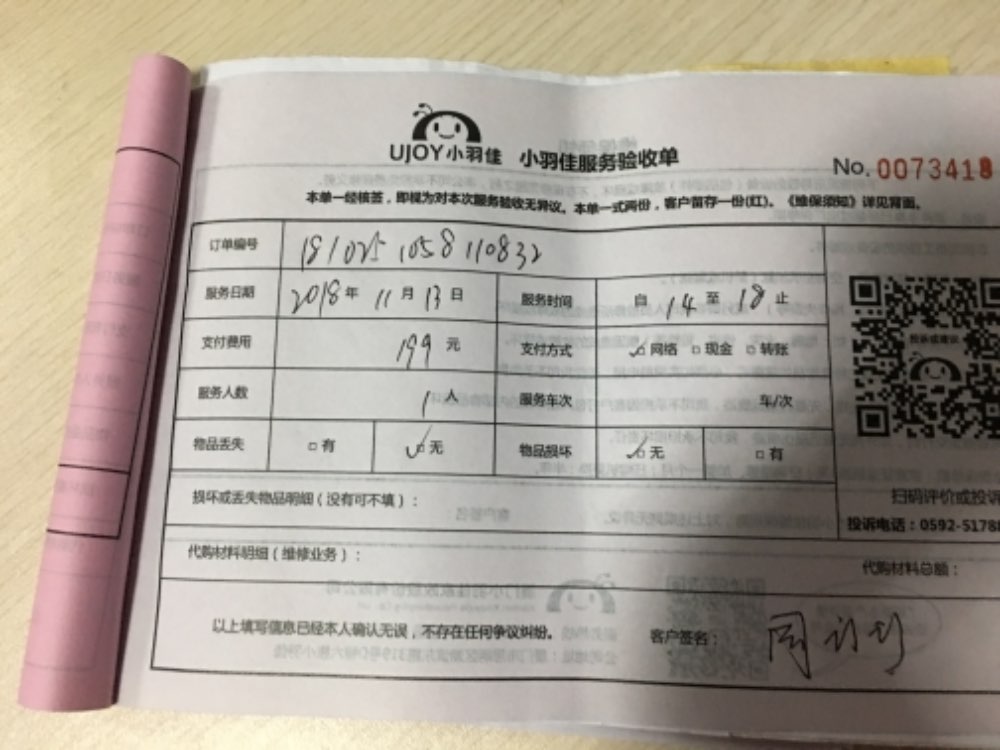 UJOY小羽佳 小羽佳服务验收单
No. 0073418
本单一经核签，即视为对本次服务验收无异议。本单一式两份，客户留存一份(红)。《维保须知》详见背面。
订单编号 181025 1058 110832
服务日期 2018年 11月 13日 服务时间 自 14 至 18 止
支付费用 199 元 支付方式 ☑网络 □现金 □转账
服务人数 1 人 服务车次 车/次
物品丢失 □有 ☑无 物品损坏 ☑无 □有
投诉或建议
损坏或丢失物品明细（没有可不填）：
扫码评价或投诉
投诉电话：0592-5178
代购材料明细（维修业务）：
代购材料总额：
以上填写信息已经本人确认无误，不存在任何争议纠纷。 客户签名：